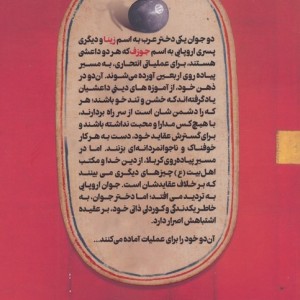 دو جوان یکی دختر عرب به اسم زینا و دیگری
پسری اروپایی به اسم جوزف که هر دو داعشی
هستند، برای عملیاتی انتحاری، به مسیر
پیاده روی اربعین آورده می‌شوند. آن‌دو در
ذهن خود، از آموزه های دینی داعشیان
یاد گرفته‌اند که خشن و تند خو باشند؛ هر
که را دشمن شان است از سر راه بردارند،
با هیچ کس مدارا و محبت نداشته باشند و
برای گسترش عقاید خود، دست به هر کار
خوفناک و ناجوانمردانه‌ای بزنند. اما در
مسیر پیاده‌روی کربلا، از دین خدا و مکتب
اهل‌بیت (ع) چیزهای دیگری می بینند
که بر خلاف عقایدشان است. جوان اروپایی
به تردید می افتد؛ اما دختر جوان، به
خاطر یکدندگی و کوردلی ذاتی خود، بر عقیده
اشتباهش اصرار دارد.
آن‌دو خود را برای عملیات آماده می‌کنند...